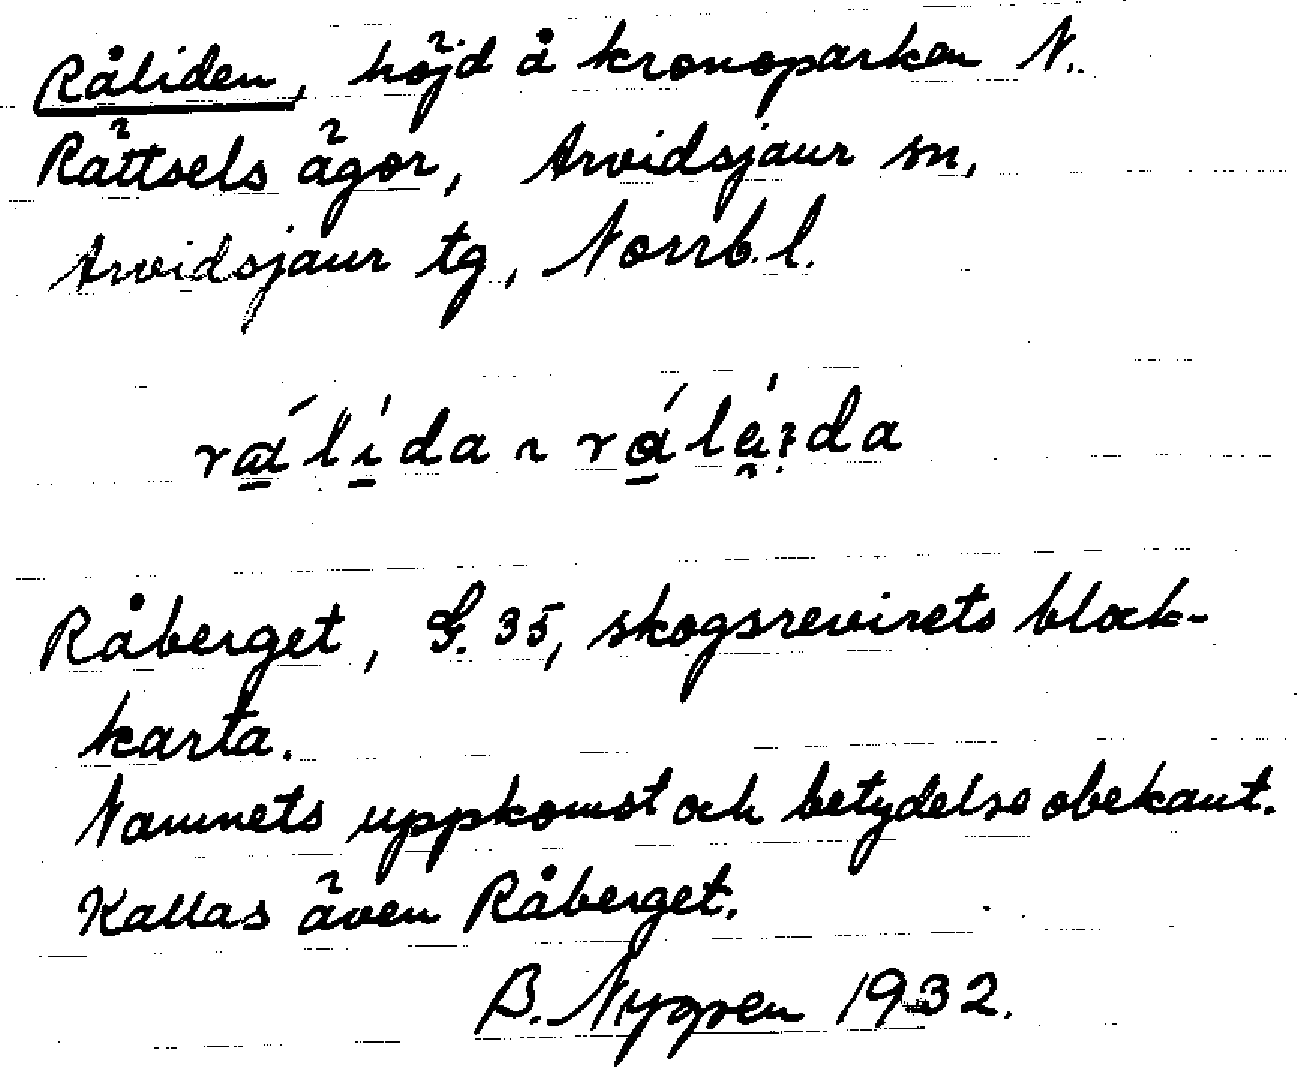 Råliden, höjd å kronoparken N.
Rättsels ägor, Arvidsjaur sn,
Arvidsjaur tg, Norrb. l.
Råberget, G. 35, skogsrevirets block-
karta.
Namnets uppkomst och betydelse obekant.
Kallas även Råberget.
B. Nygren 1932.